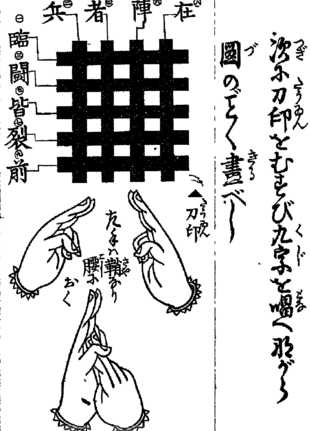 次に刀印をむすび九字を唱へながら
圖のごとく畫べし
在
陣
者
兵
臨
闘
皆
裂
前
刀印
左手ハ鞘なり
腰に
おく